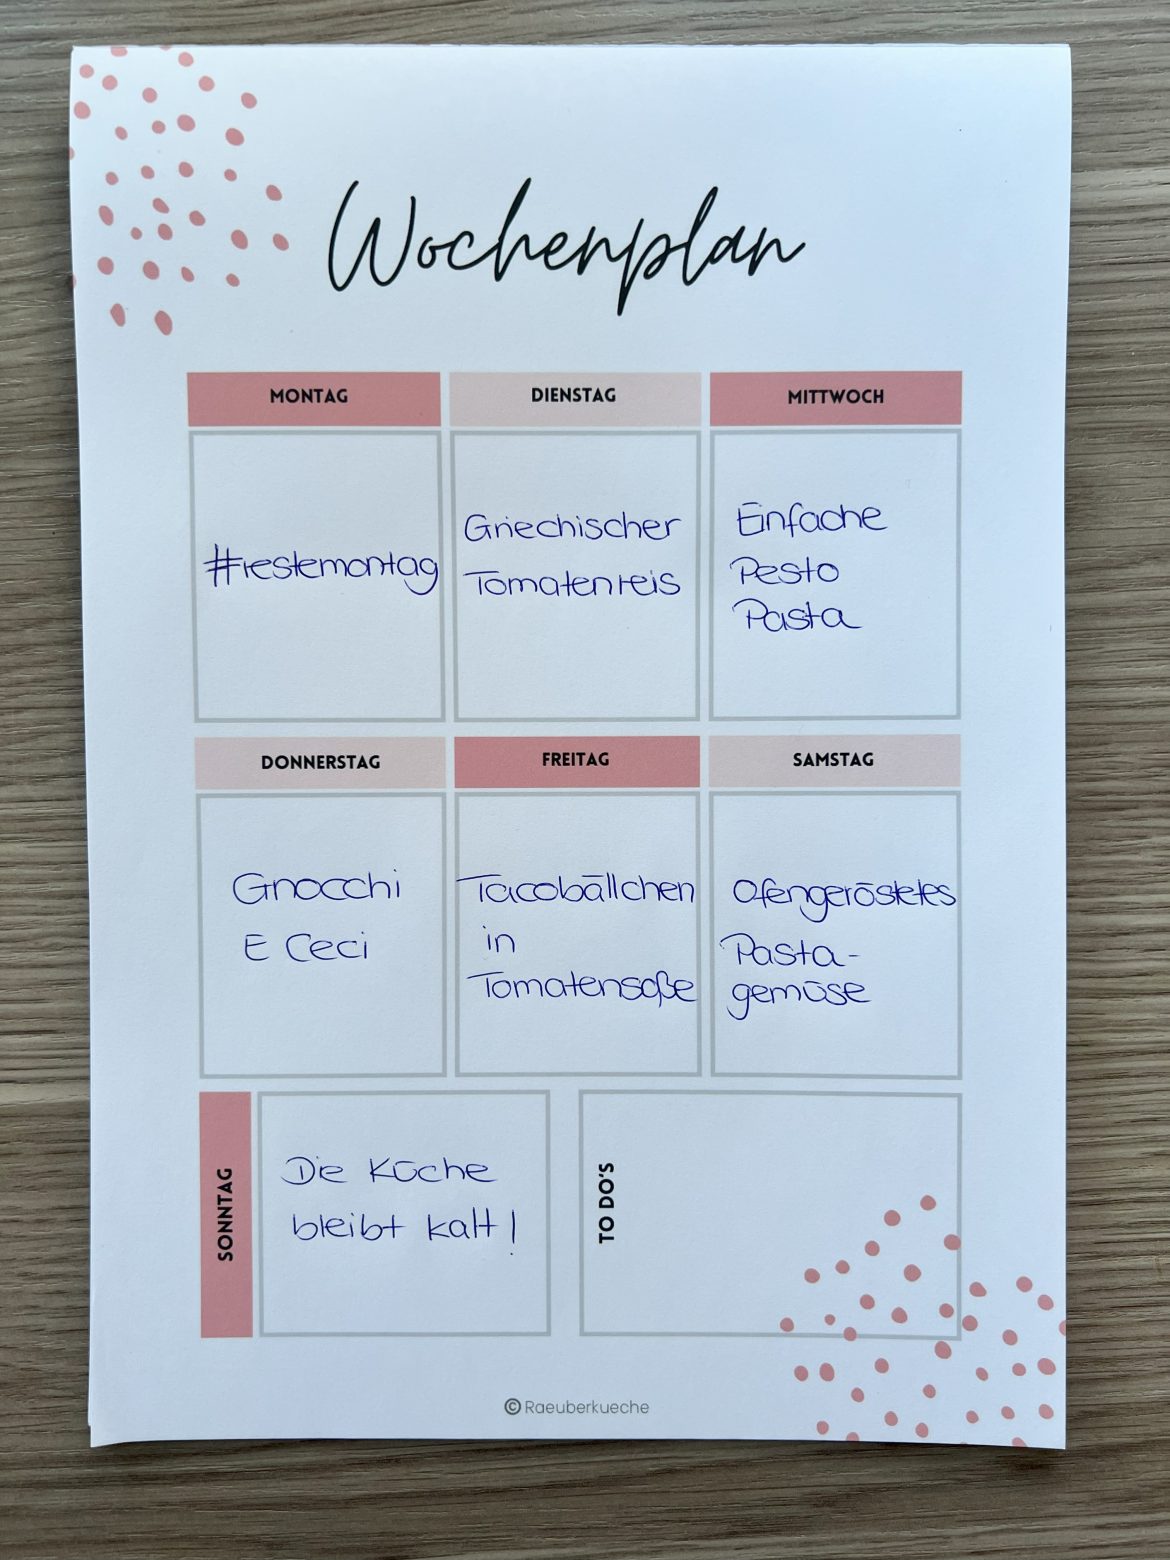 Wochenplan
MONTAG
DIENSTAG
MITTWOCH
#restemontag
Griechischer
Tomatenreis
Einfache
Pesto
Pasta
DONNERSTAG
FREITAG
SAMSTAG
Gnocchi
E Ceci
Tacobällchen
in
Tomatensoße
Ofengeröstetes
Pasta-
gemüse
SONNTAG
Die Küche
bleibt kalt!
TO DO'S
© Raeuberkueche